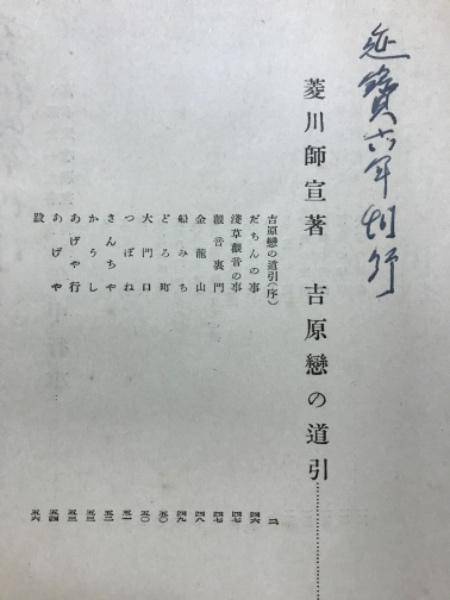 延寶六年刊行
菱川師宣著 吉原戀の道引
吉原戀の道引(序) 二
だちんの事 四六
淺草觀音の事 四七
觀音裏門 四七
金龍山 四八
船みち 四九
どろ町 五〇
大門口 五〇
つぼね 五一
さんちや 五二
かうし 五三
あげや行 五三
あげや 五四
跋 五六